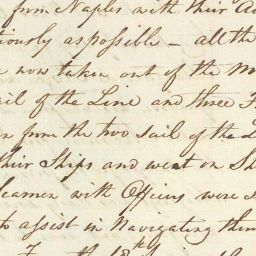 from Naples with their A
tiously as possible - all the
now taken out of the M
ail of the Line and three F
n from the two sail of the L
their Ships and went on Sh
Seamen with Officers were
to assist in Navigating them
the 18th